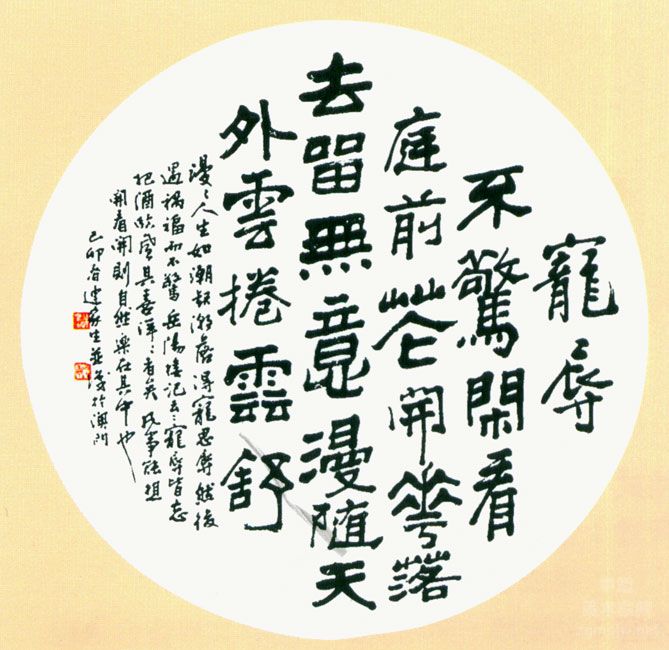 寵辱
不驚閑看
庭前花開華落
去留無意漫隨天
外雲捲雲舒
漫〻人生如潮起潮落得寵思辱然後
遇禍福而不驚岳陽樓記云寵辱皆忘
把酒臨風其喜洋〻者矣凡事能想
開看開則自然樂在其中也
己卯春建生並識於澳門